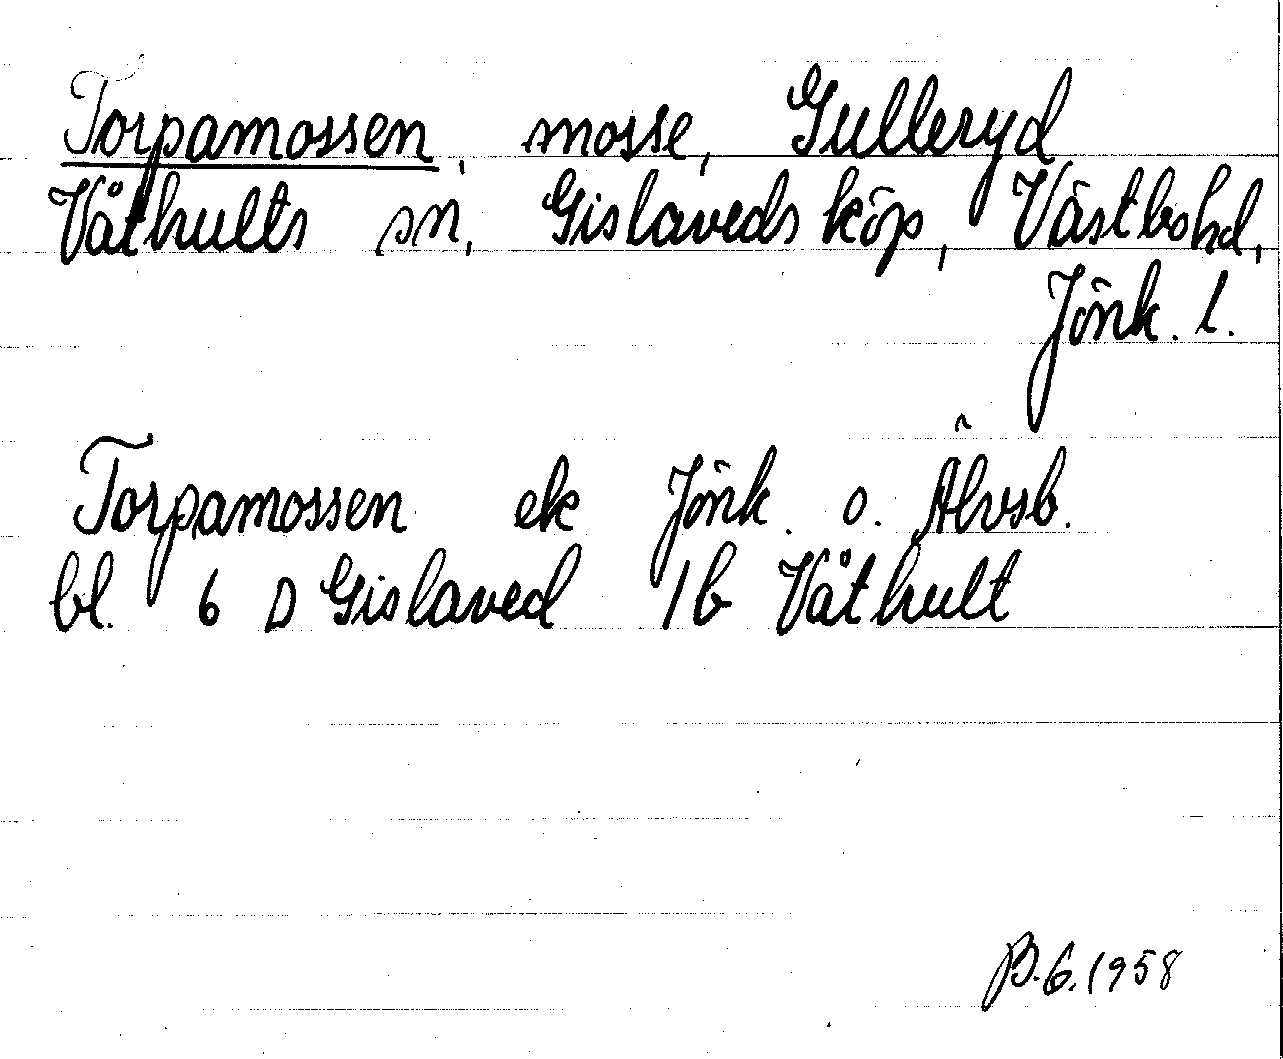 Torpamossen, mosse, Gulleryd
Våthults sn, Gislaveds köp, Västbo hd,
Jönk. l.
Torpamossen ek Jönk. o. Älvsb.
bl. 6 D Gislaved 1b Våthult
B.G. 1958